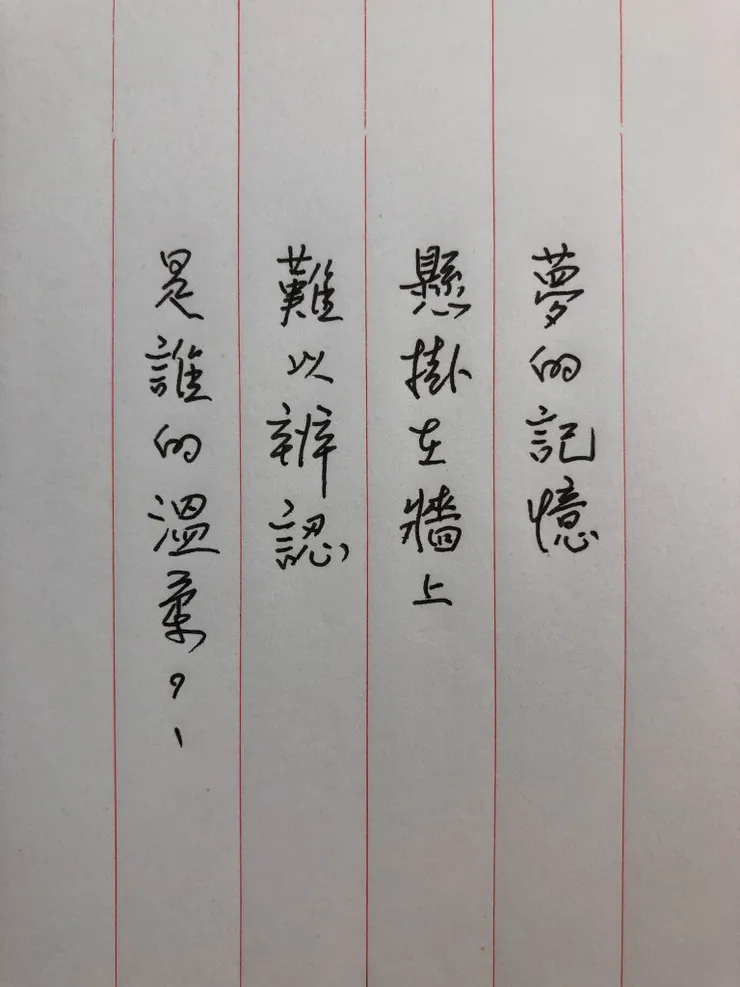 夢的記憶
懸掛在牆上
難以辨認
是誰的溫柔，、